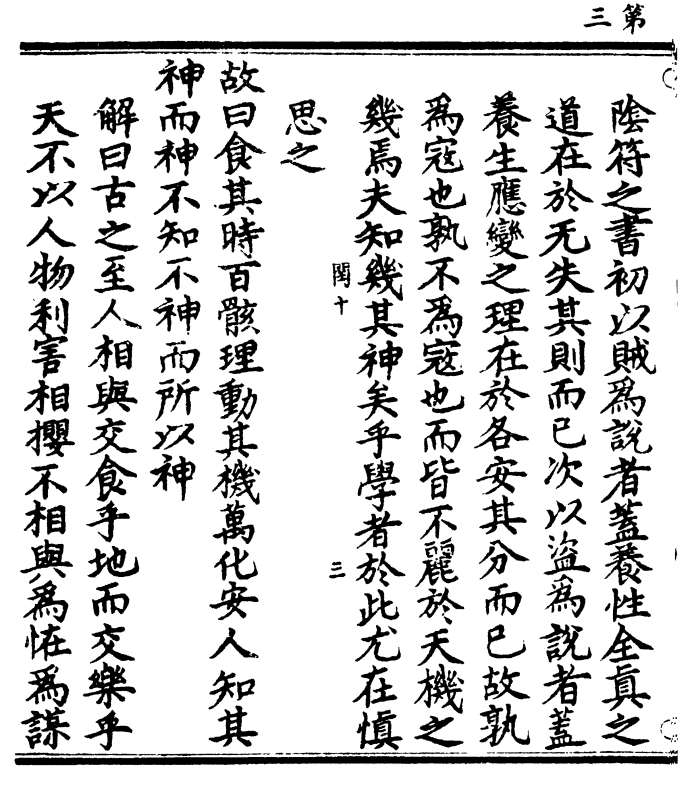 第三
陰符之書初以賊爲說者蓋養性全眞之
道在於无失其則而已次以盜爲說者蓋
養生應變之理在於各安其分而已故孰
爲寇也孰不爲寇也而皆不麗於天機之
幾焉夫知幾其神矣乎學者於此尤在慎
閏十
三
思之
故曰食其時百骸理動其機萬化安人知其
神而神不知不神而所以神
解曰古之至人相與交食乎地而交樂乎
天不以人物利害相攖不相與爲恠爲謀